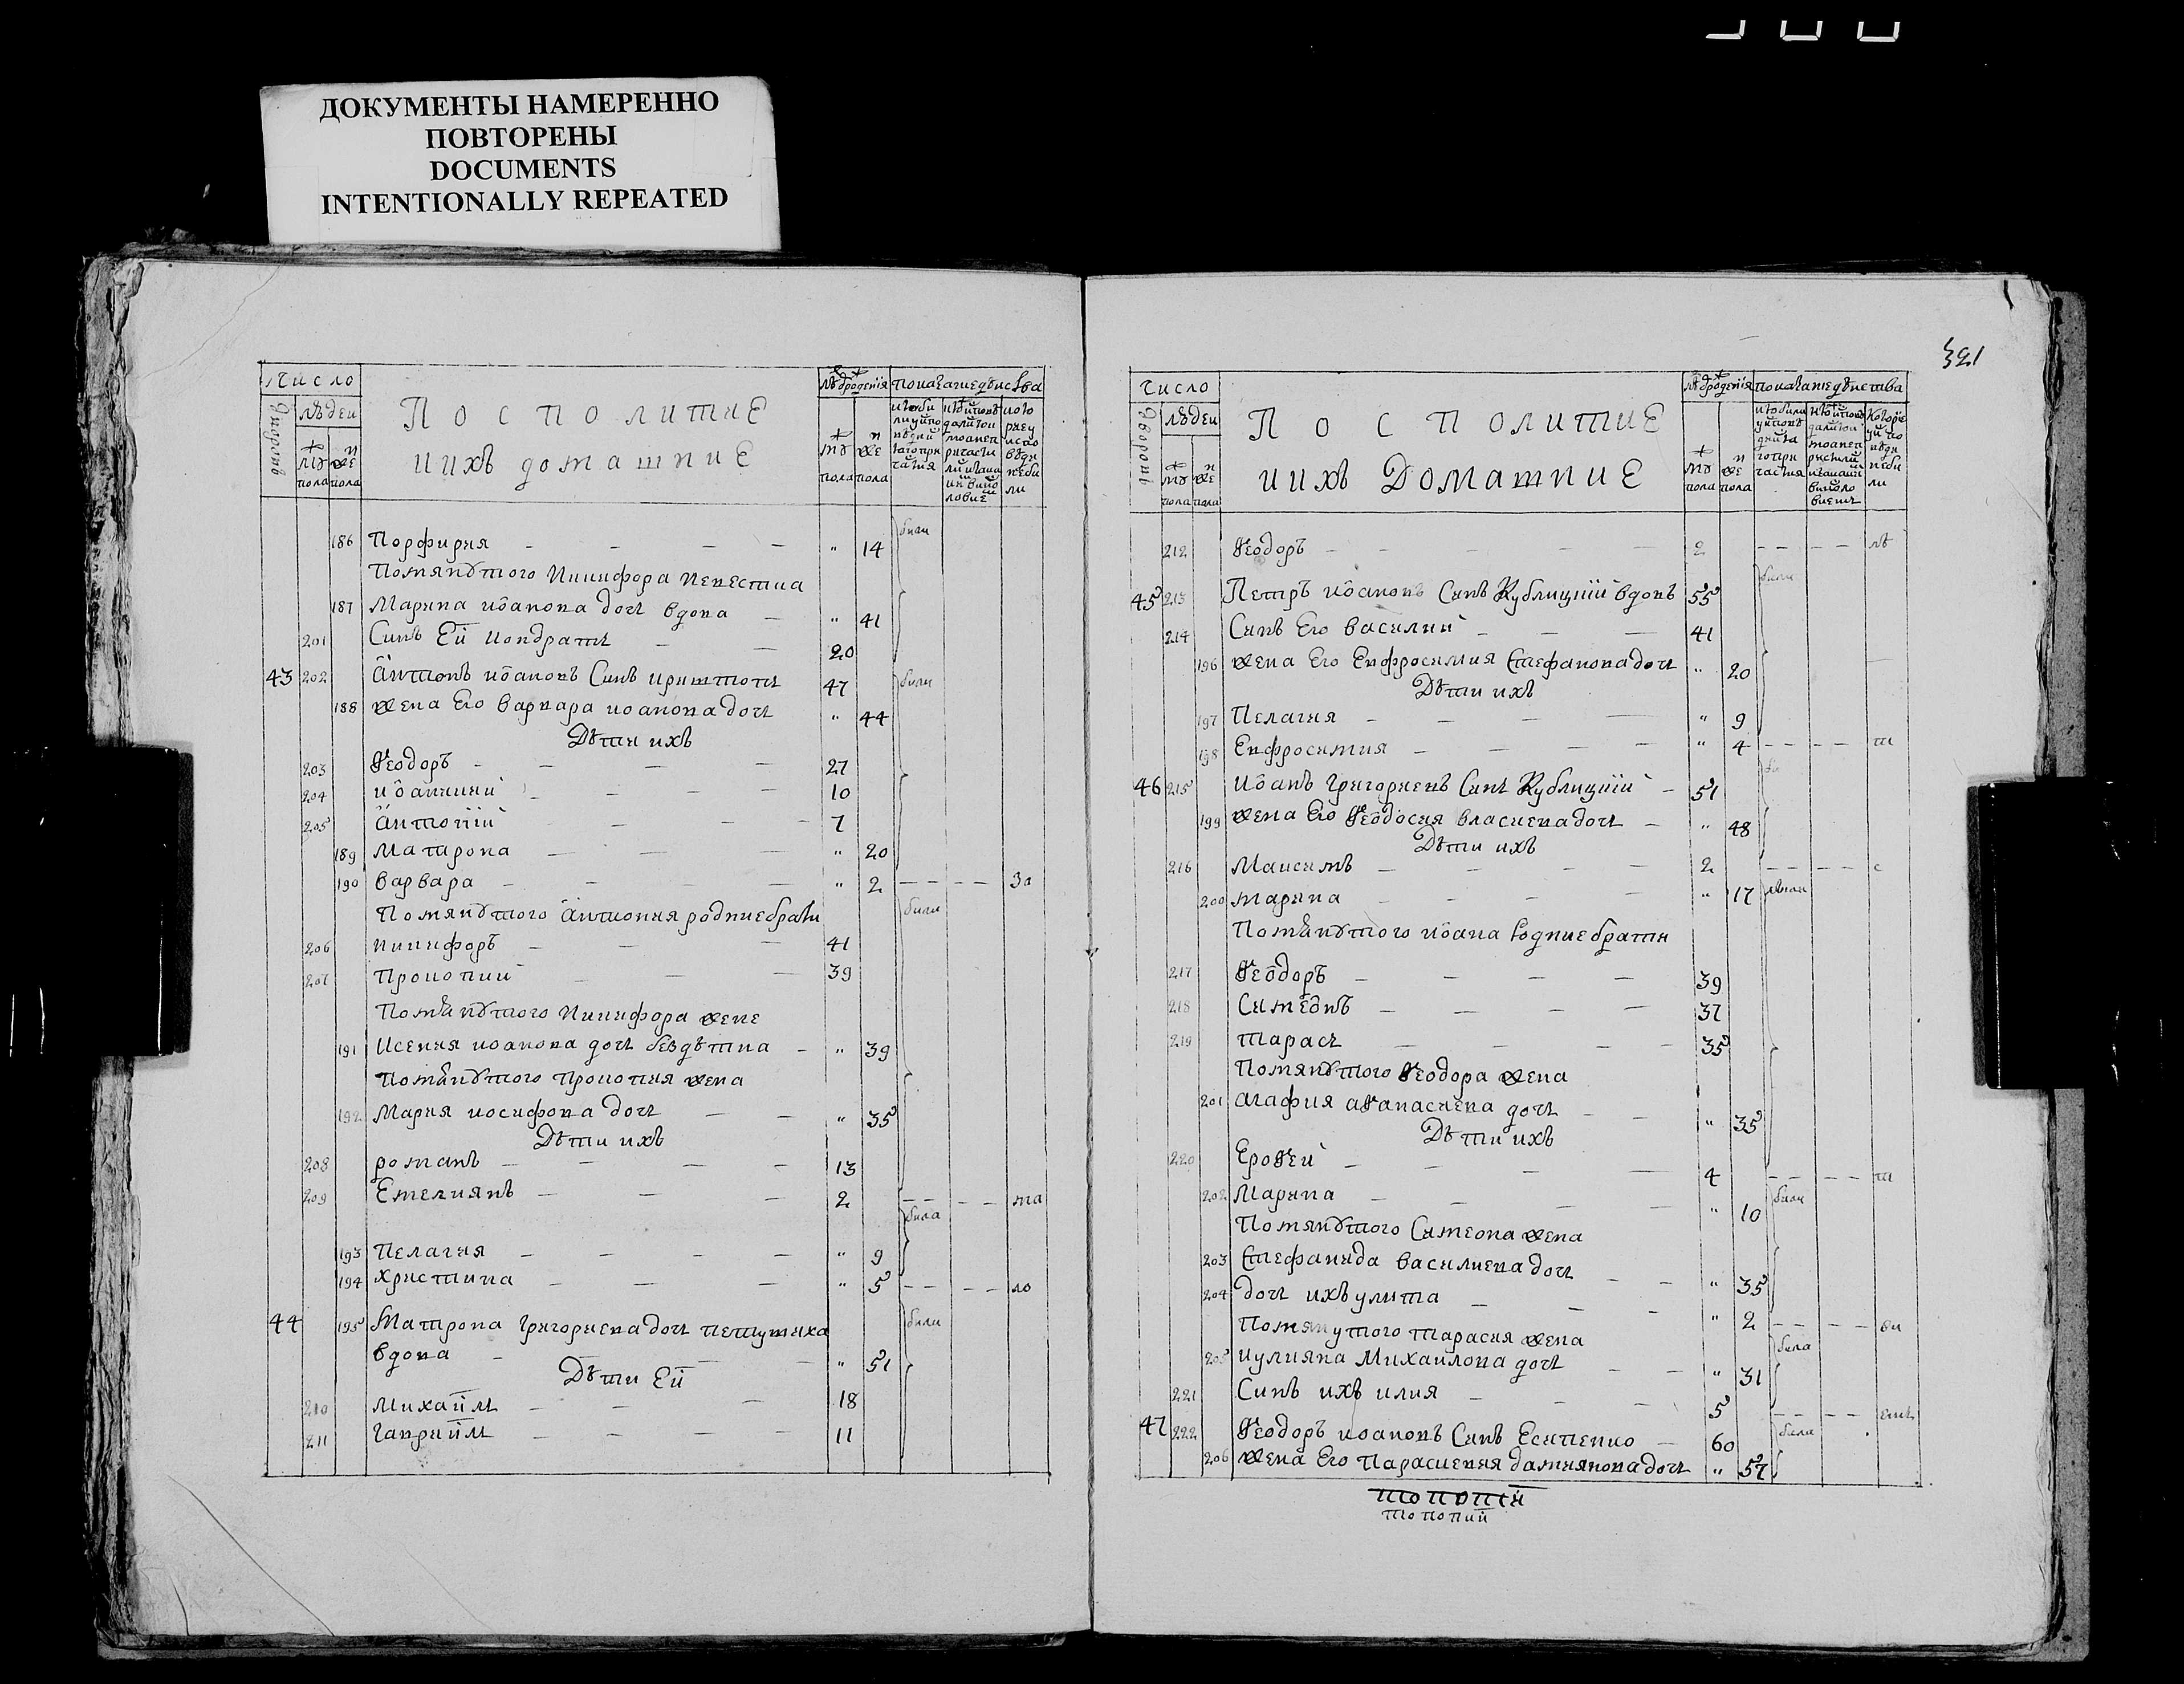 ДОКУМЕНТЫ НАМЕРЕННО
ПОВТОРЕНЫ
DOCUMENTS
INTENTIONALLY REPEATED
Число
людеи
П о с п о л и т и е
и и х ъ д о м а ш н и е
му пола
же пола
186 Порфирия — — — — " 14 били
Помянутого Никифора невестка
187 Марина иоанова дочь вдова — " 41
201 Синъ Еи Кондратъ — — 20
43 202 Антонъ иоановъ Синъ 47 били
188 жена Его варвара иоанова дочь " 44
Дѣти ихъ
203 Ѳеодоръ — — — — 27
204 иоаникий — — — 10
205 Антоний — — — 7
189 Матрона — — — " 20
190 варвара — — — — " 2 — — — — за
Помянутого Антония родние брати били
206 никифоръ — — — 41
207 Прокопий — — 39
Помянутого Никифора жене
191 Ксения иоанова дочь бездѣтна — " 39
Помянутого Прокопия жена
192 Мария иосифова дочь — — " 35
Дѣти ихъ
208 романъ — — — — 13
209 Емелиянъ — — — 2 — — — — ма
била
193 Пелагия — — — — " 9
194 христина — — — " 5 — — — — ло
44 195 Матрона григориева дочь петушиха били
вдова — — — — " 51
Дѣти Еи
210 Михаилъ — — — 18
211 гавриилъ — — — — 11
321
Число
людеи
П о с п о л и т и е
и и х ъ Д о м а ш н и е
му пола
же пола
212 Ѳеодоръ — — — — 2 — — — — лѣ
били
45 213 Петръ иоановъ Синъ Кублицкий вдовъ 55
214 Синъ Его василий — — — 41
196 жена Его Евфросимия Стефанова дочь " 20
Дѣти ихъ
197 Пелагия — — — — " 9
198 Евфросимия — — — — " 4 — — — — т
46 215 иоанъ григориевъ Синъ Кублицкий — 51
199 жена Его Ѳеодосия власиева дочь — " 48
Дѣти ихъ
216 Максимъ — — — — 2 — — — — с
200 марина — — — — " 17
Помянутого иоана родние братия
217 Ѳеодоръ — — — — 39
218 Симеонъ — — — — 37
219 тарасъ — — — — 35
Помянутого Ѳеодора жена
201 агафия аѳанасиева дочь — — " 35
Дѣти ихъ
220 Ероѳей — — — — 4 — — — — т
202 Марина — — — — " 10 били
Помянутого Симеона жена
203 Стефанида василиева дочь — — " 35
204 дочь ихъ улита — — — " 2 — — — — ви
Помянутого тарасия жена била
205 иулияна Михаилова дочь — — " 31
221 Синъ ихъ илия — — — 5 — — — —
47 222 Ѳеодоръ иоановъ Синъ Есипенко — 60 била
206 жена Его Параскевия дамиянова дочь " 57